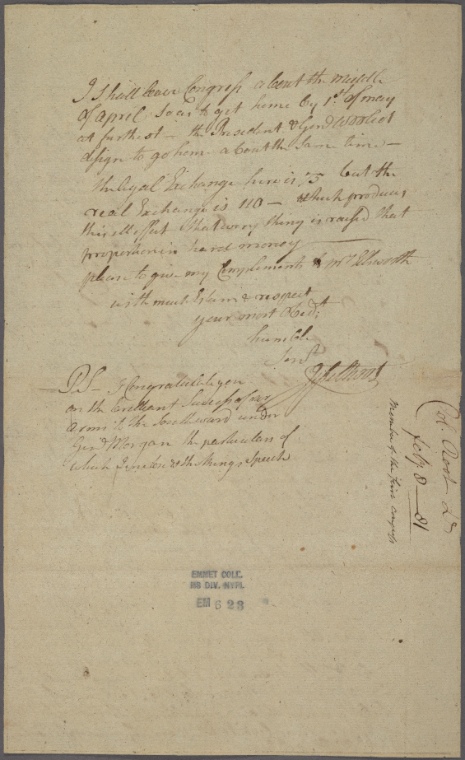 I shall leave Congress about the middle
of April so as to get home by 1st of may
at farthest — the President & Genl Wolcot
design to go home about the same time —
the legal Exchange here is 75 but the
real Exchange is 110 — which produces
this effect that every thing is raised that
proportion in hard money
please to give my Complements to Mr Elsworth
with much Esteem & respect
your most Obedt
humble
Servt
P.S. I Congratulate you
on the brilliant Success of our
arms to the Southward under
Genl Morgan the particulars of
which I inclose & the Kings Speech
Col. Root
Feby 8 — 81
Member of the Congress
EMMET COLL.
MS DIV. NYPL
EM 628